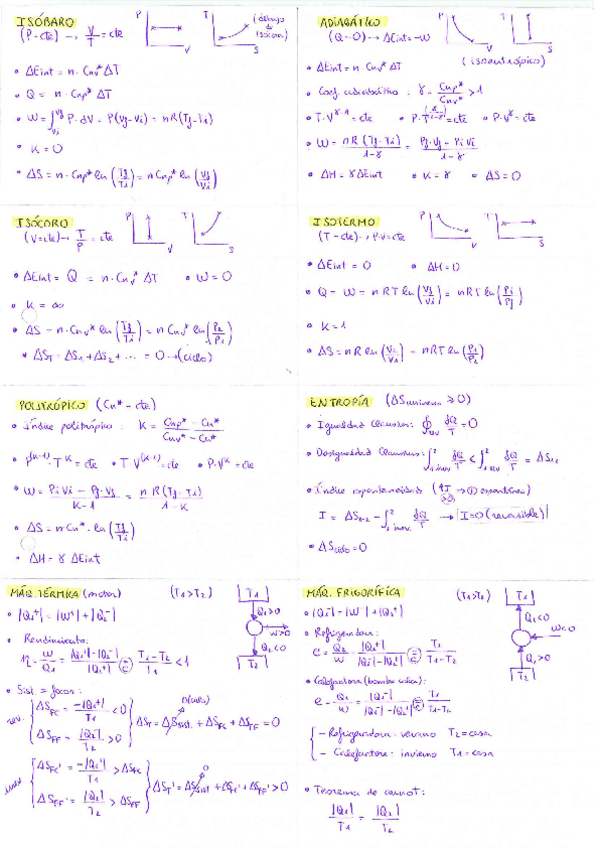 ISÓBARO
(P=cte) → V/T = cte
P
V
T
S
(debajo de isócora)
• ΔEint = n · Cnv* ΔT
• Q = n · Cnp* ΔT
• W = ∫ P·dV = P(Vf-Vi) = nR(Tf-Ti)
• K = 0
• ΔS = n · Cnp* ln(Tf/Ti) = n Cnp* ln(Vf/Vi)
ADIABÁTICO
(Q=0) → ΔEint = -W
P
V
T
S
(isoentrópico)
• ΔEint = n · Cnv* ΔT
• Coef. adiabático: γ = Cnp*/Cnv* > 1
• T·V^(γ-1) = cte • P·T^(γ/1-γ) = cte • P·V^γ = cte
• W = nR(Tf-Ti)/1-γ = Pf·Vf - PiVi/1-γ
• ΔH = γΔEint • K = γ • ΔS = 0
ISÓCORO
(V=cte) → T/P = cte
P
V
T
S
• ΔEint = Q = n · Cnv* ΔT • W = 0
• K = ∞
• ΔS = n · Cnv* ln(Tf/Ti) = n Cnv* ln(Pf/Pi)
• ΔST = ΔS1 + ΔS2 + ... = 0 → (ciclo)
ISOTERMO
(T=cte) → P·V=cte
P
V
T
S
• ΔEint = 0 • ΔH = 0
• Q = W = nRT ln(Vf/Vi) = nRT ln(Pi/Pf)
• K = 1
• ΔS = nR ln(Vf/Vi) = nRT ln(Pi/Pf)
POLITRÓPICO (Cn* = cte)
• Índice politrópico: K = Cnp* - Cn*/Cnv* - Cn*
• P^(K-1)·T^K = cte • T·V^(K-1) = cte • P·V^K = cte
• W = PiVi - Pf·Vf/K-1 = nR(Tf-Ti)/1-K
• ΔS = n Cn* · ln(Tf/Ti)
• ΔH = γ ΔEint
ENTROPÍA (ΔSuniverso ≥ 0)
• Igualdad Clausius: ∮rev dQ/T = 0
• Desigualdad Clausius: ∫ irrev dQ/T < ∫ rev dQ/T = ΔS1,2
• Índice espontaneidad (↑I → espontáneo)
I = ΔS1→2 - ∫ irrev dQ/T → |I=0 (reversible)|
• ΔSciclo = 0
MÁQ. TÉRMICA (motor) (T1>T2)
T1
Q1>0
W>0
Q2<0
T2
• |Q1| = |W| + |Q2|
• Rendimiento:
η = W/Q1 = |Q1|-|Q2|/|Q1| = T1-T2/T1 < 1
• Sist = focos:
rev. ΔSFC = -|Q1|/T1 < 0
ΔSFF = |Q2|/T2 > 0
0 (ciclo)
ΔST = ΔSsist + ΔSFC + ΔSFF = 0
irrev ΔSFC' = -|Q1'|/T1 > ΔSFC
ΔSFF' = |Q2'|/T2 > ΔSFF
0
ΔST' = ΔSsist + ΔSFC' + ΔSFF' > 0
MÁQ. FRIGORÍFICA (T1>T2)
T1
Q1<0
W<0
Q2>0
T2
• |Q1| = |W| + |Q2|
• Refrigeradora:
e = Q2/W = |Q2|/|Q1|-|Q2| = T2/T1-T2
• Calefactora (bomba calor):
e = Q1/W = |Q1|/|Q1|-|Q2| = T1/T1-T2
- Refrigeradora: verano T2=casa
- Calefactora: invierno T1=casa
• Teorema de Carnot:
|Q1|/T1 = |Q2|/T2